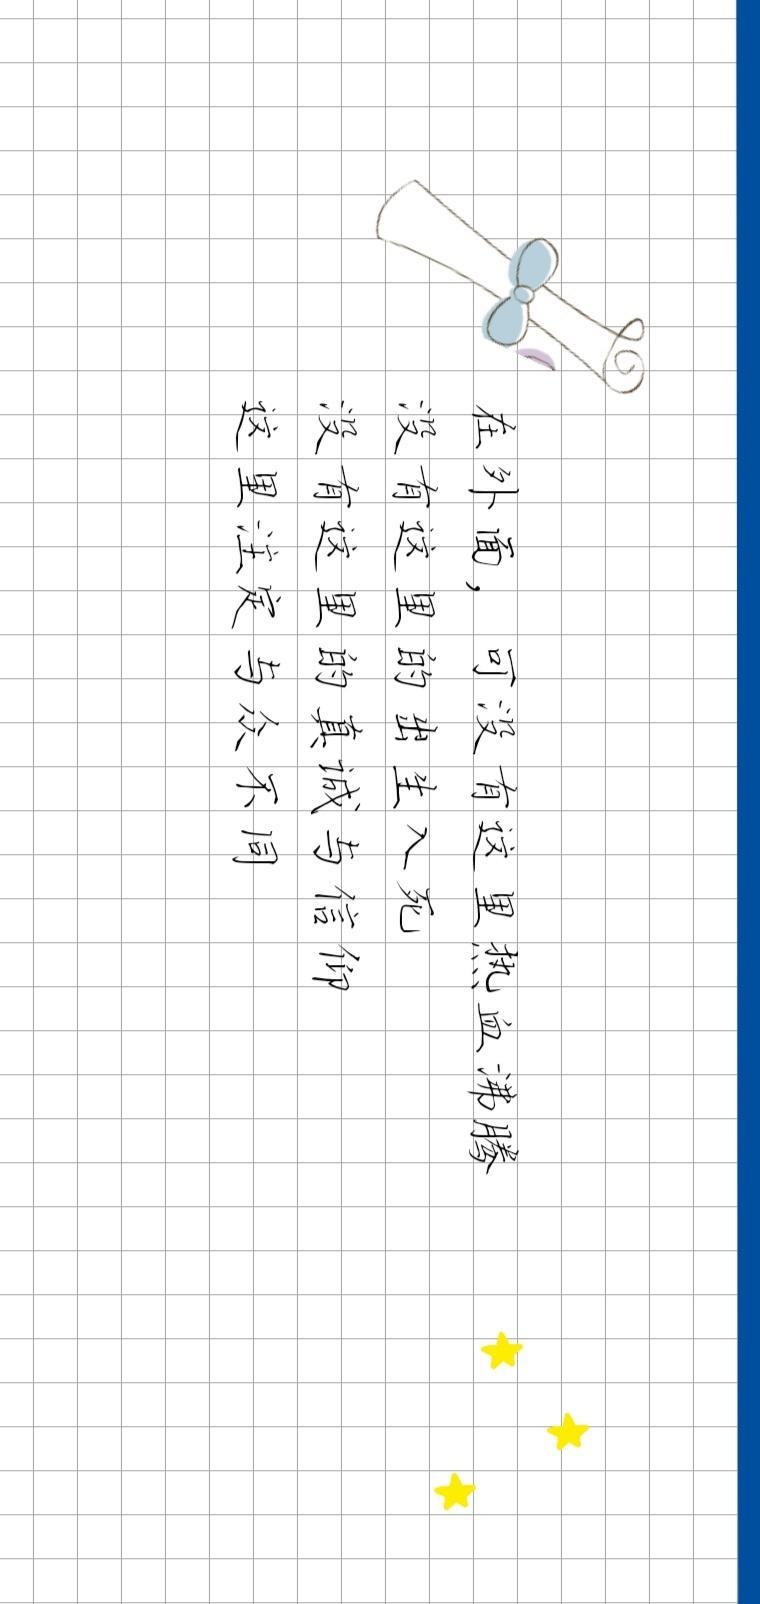 在外面，可没有这里热血沸腾
没有这里的出生入死
没有这里的真诚与信仰
这里注定与众不同